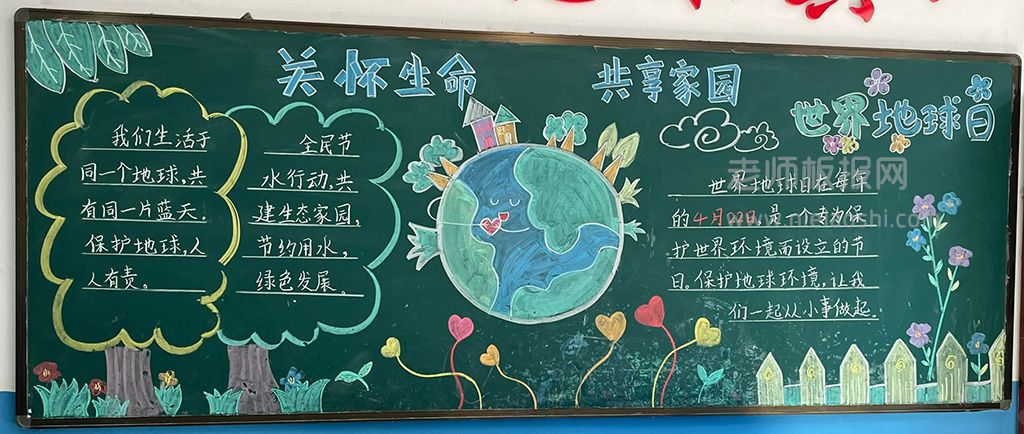 关怀生命 共享家园
世界地球日
我们生活于
同一个地球,共
有同一片蓝天.
保护地球,人
人有责。
全民节
水行动,共
建生态家园,
节约用水,
绿色发展。
世界地球日在每年
的4月22日,是一个专为保
护世界环境而设立的节
日。保护地球环境,让我
们一起从小事做起.
老师板报网